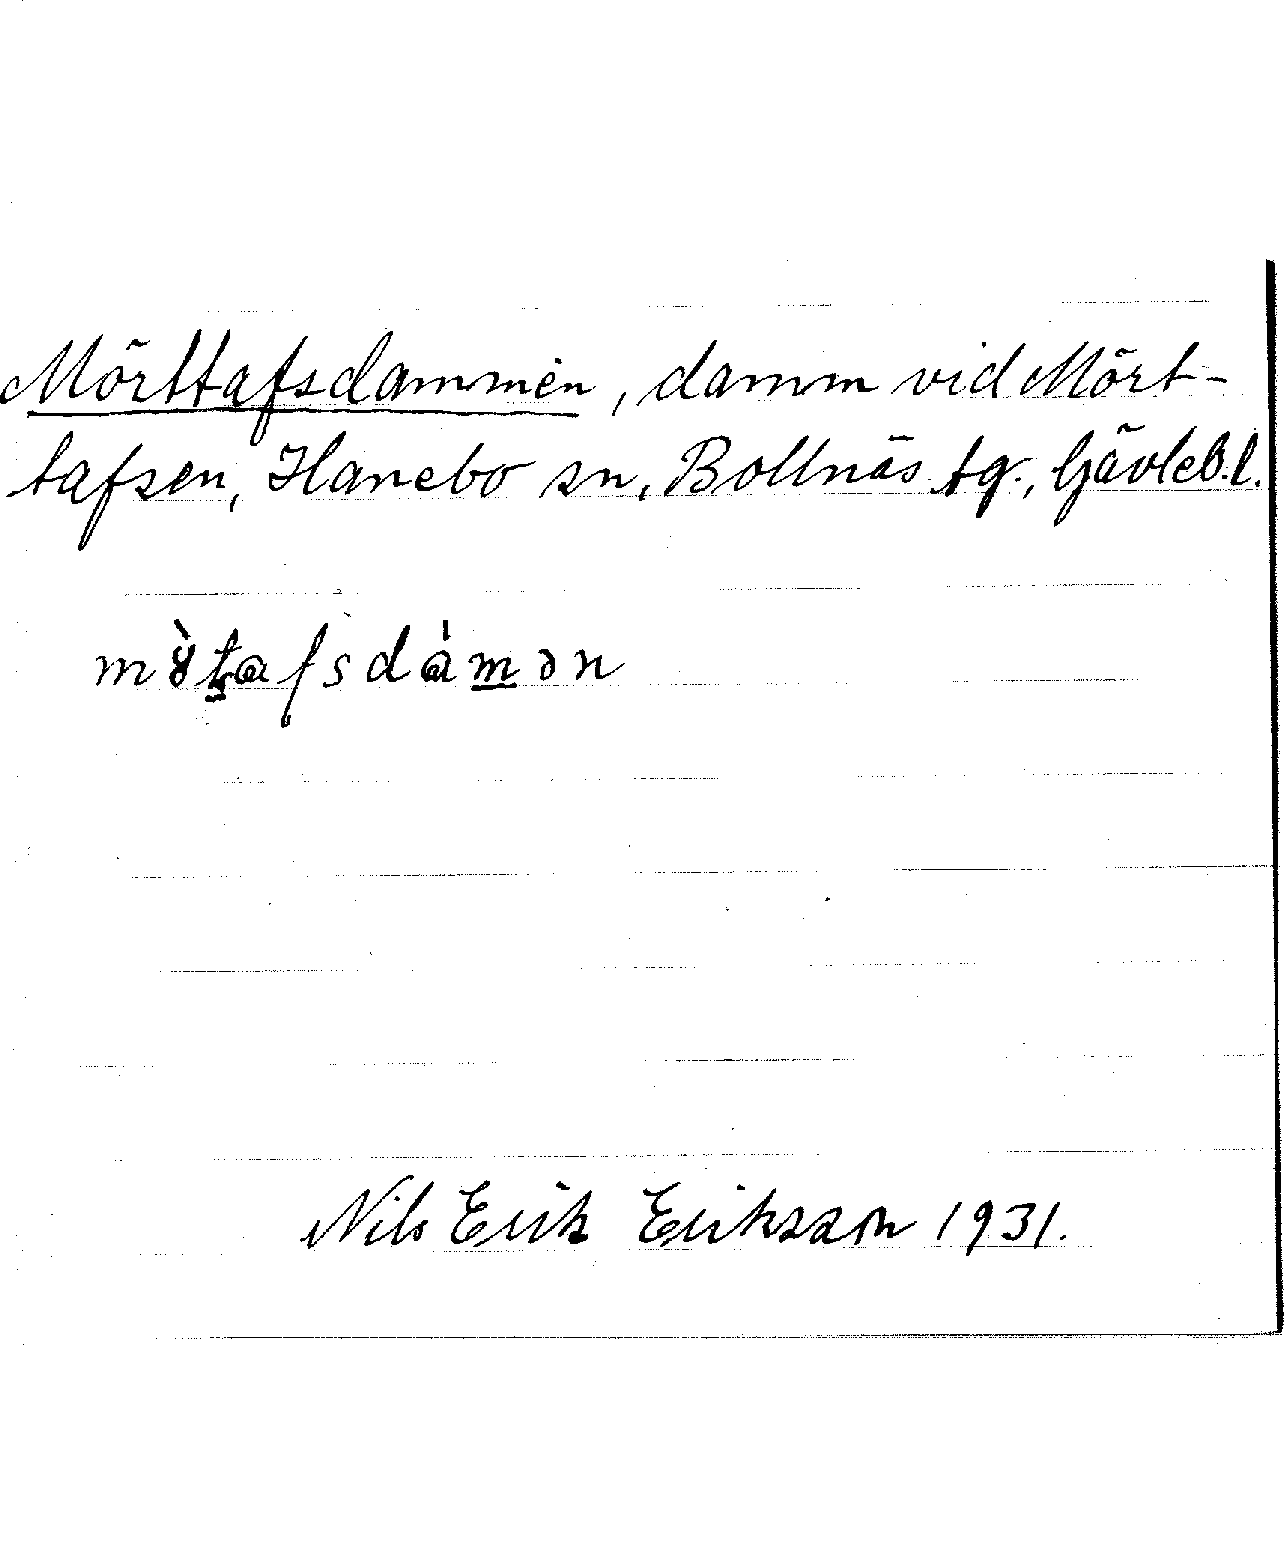 Mörttafsdammen, damm vid Mört-
tafsen, Hanebo sn, Bollnäs tg., Gävleb.l.
Nils Erik Eriksson 1931.